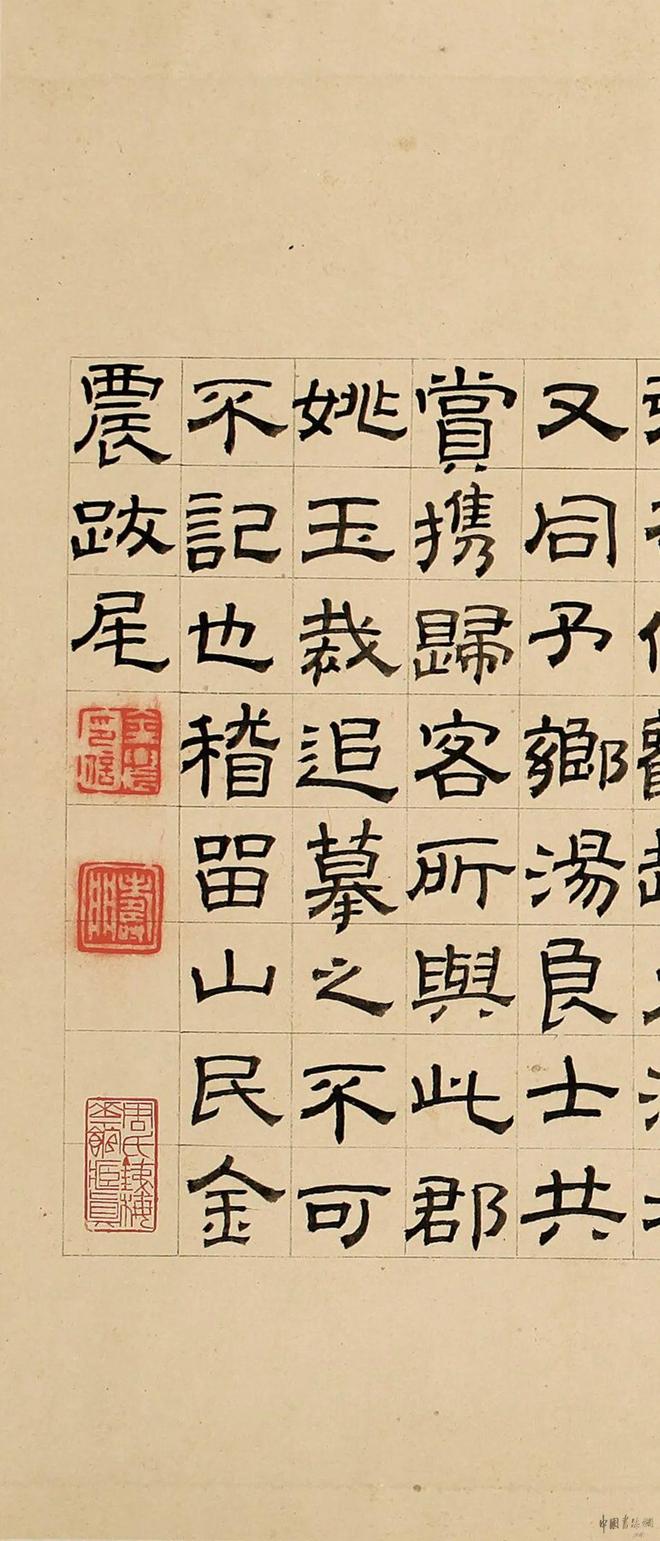 又同予鄉湯良士共
賞携歸客所與此郡
姚玉裁追摹之不可
不記也稽留山民金
農跋尾
金農印信
壽門
中國書法網